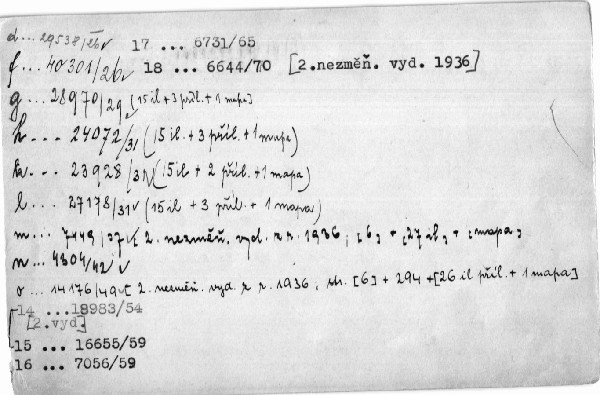 d... 29538/26v 17 ... 6731/65
f... 40301/26v 18 ... 6644/70 [2.nezměň. vyd. 1936]
g ... 28970/29v [15 il + 3 příl. + 1 mapa]
h... 24072/31 (15 il. + 3 příl. + 1 mapa)
k... 23928/31v (15 il + 2 příl. + 1 mapa)
l... 27178/31v (15 il + 3 příl. + 1 mapa)
m... 7449/37v [2. nezměň. vyd. z r. 1936; [6] + [27 il] + [mapa]
n... 4304/42 v
o ... 14176/49v [2. nezměň. vyd. z r. 1936, str. [6] + 294 + [26 il příl. + 1 mapa]
14 ...18983/54
[2.vyd]
15 ... 16655/59
16 ... 7056/59